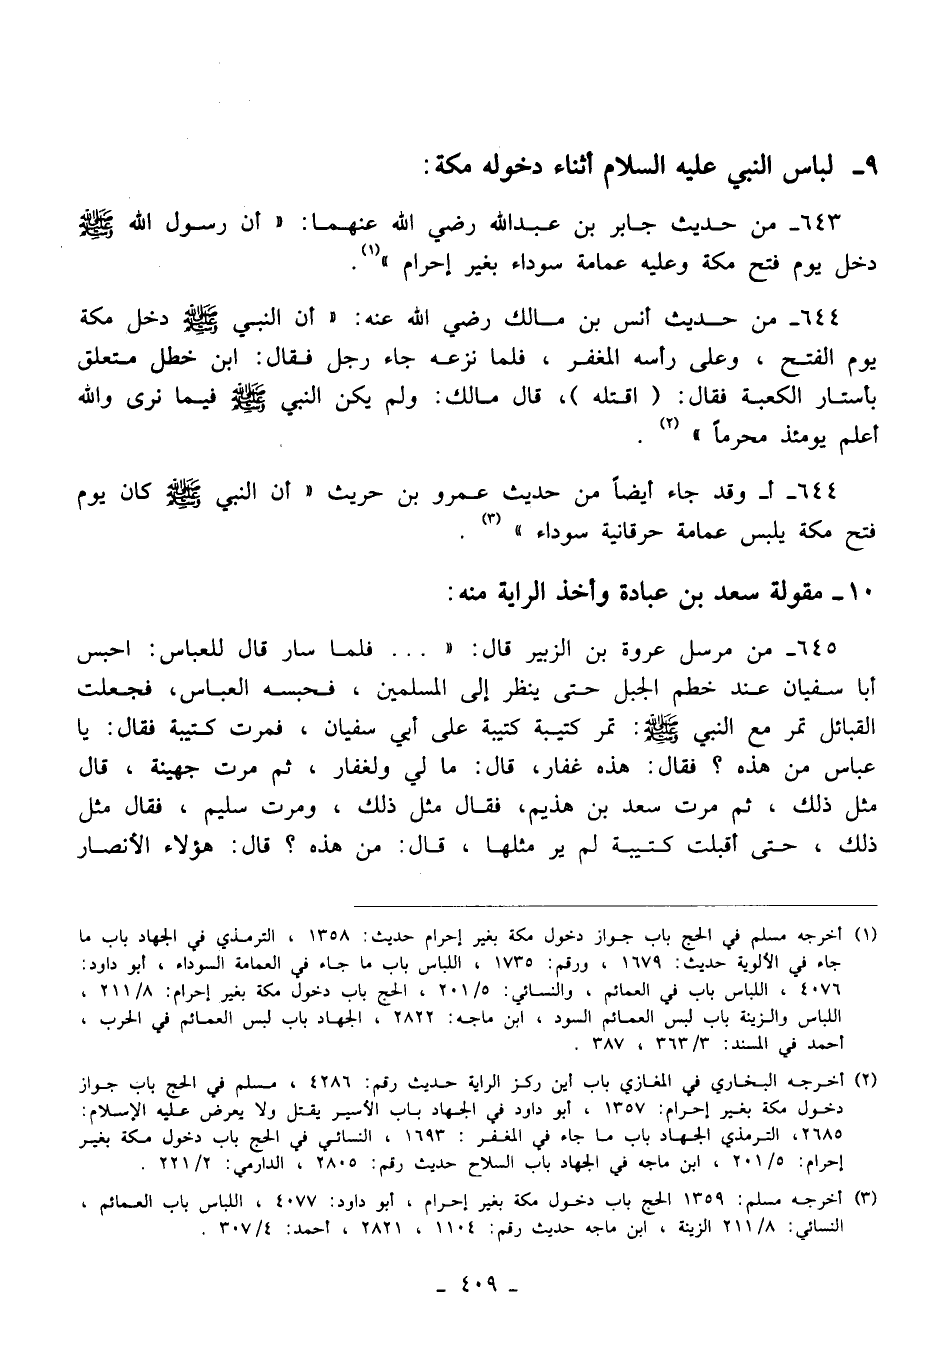 ٩ـ لباس النبي عليه السلام أثناء دخوله مكة:
٦٤٣ـ من حديث جابر بن عبدالله رضي الله عنهما: « أن رسول الله ﷺ
دخل يوم فتح مكة وعليه عمامة سوداء بغير إحرام »(١).
٦٤٤ـ من حديث أنس بن مالك رضي الله عنه: « أن النبي ﷺ دخل مكة
يوم الفتح ، وعلى رأسه المغفر ، فلما نزعه جاء رجل فقال: ابن خطل متعلق
بأستار الكعبة فقال: ( اقتله )، قال مالك: ولم يكن النبي ﷺ فيما نرى والله
أعلم يومئذ محرماً » (٢) .
٦٤٤ـ أـ وقد جاء أيضاً من حديث عمرو بن حريث « أن النبي ﷺ كان يوم
فتح مكة يلبس عمامة حرقانية سوداء » (٣) .
١٠ـ مقولة سعد بن عبادة وأخذ الراية منه:
٦٤٥ـ من مرسل عروة بن الزبير قال: « ... فلما سار قال للعباس: احبس
أبا سفيان عند خطم الجبل حتى ينظر إلى المسلمين ، فحبسه العباس، فجعلت
القبائل تمر مع النبي ﷺ: تمر كتيبة كتيبة على أبي سفيان ، فمرت كتيبة فقال: يا
عباس من هذه ؟ فقال: هذه غفار، قال: ما لي ولغفار ، ثم مرت جهينة ، قال
مثل ذلك ، ثم مرت سعد بن هذيم، فقال مثل ذلك ، ومرت سليم ، فقال مثل
ذلك ، حتى أقبلت كتيبة لم ير مثلها ، قال: من هذه ؟ قال: هؤلاء الأنصار
(١) أخرجه مسلم في الحج باب جواز دخول مكة بغير إحرام حديث: ١٣٥٨ ، الترمذي في الجهاد باب ما
جاء في الألوية حديث: ١٦٧٩ ، ورقم: ١٧٣٥ ، اللباس باب ما جاء في العمامة السوداء ، أبو داود:
٤٠٧٦ ، اللباس باب في العمائم ، والنسائي: ٢٠١/٥ ، الحج باب دخول مكة بغير إحرام: ٢١١/٨ ،
اللباس والزينة باب لبس العمائم السود ، ابن ماجه: ٢٨٢٢ ، الجهاد باب لبس العمائم في الحرب ،
أحمد في المسند: ٣٦٣/٣ ، ٣٨٧ .
(٢) أخرجه البخاري في المغازي باب أين ركز الراية حديث رقم: ٤٢٨٦ ، مسلم في الحج باب جواز
دخول مكة بغير إحرام: ١٣٥٧ ، أبو داود في الجهاد باب الأسير يقتل ولا يعرض عليه الإسلام:
٢٦٨٥، الترمذي الجهاد باب ما جاء في المغفر : ١٦٩٣ ، النسائي في الحج باب دخول مكة بغير
إحرام: ٢٠١/٥ ، ابن ماجه في الجهاد باب السلاح حديث رقم: ٢٨٠٥ ، الدارمي: ٢٢١/٢ .
(٣) أخرجه مسلم: ١٣٥٩ الحج باب دخول مكة بغير إحرام ، أبو داود: ٤٠٧٧ ، اللباس باب العمائم ،
النسائي: ٢١١/٨ الزينة ، ابن ماجه حديث رقم: ١١٠٤ ، ٢٨٢١ ، أحمد: ٣٠٧/٤ .
ـ ٤٠٩ ـ